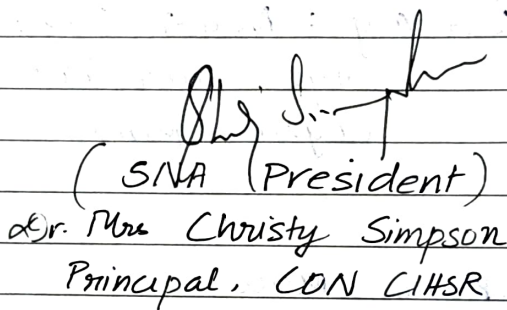 ( SNA (President)
Dr. Mrs Christy Simpson
Principal, CON CIHSR